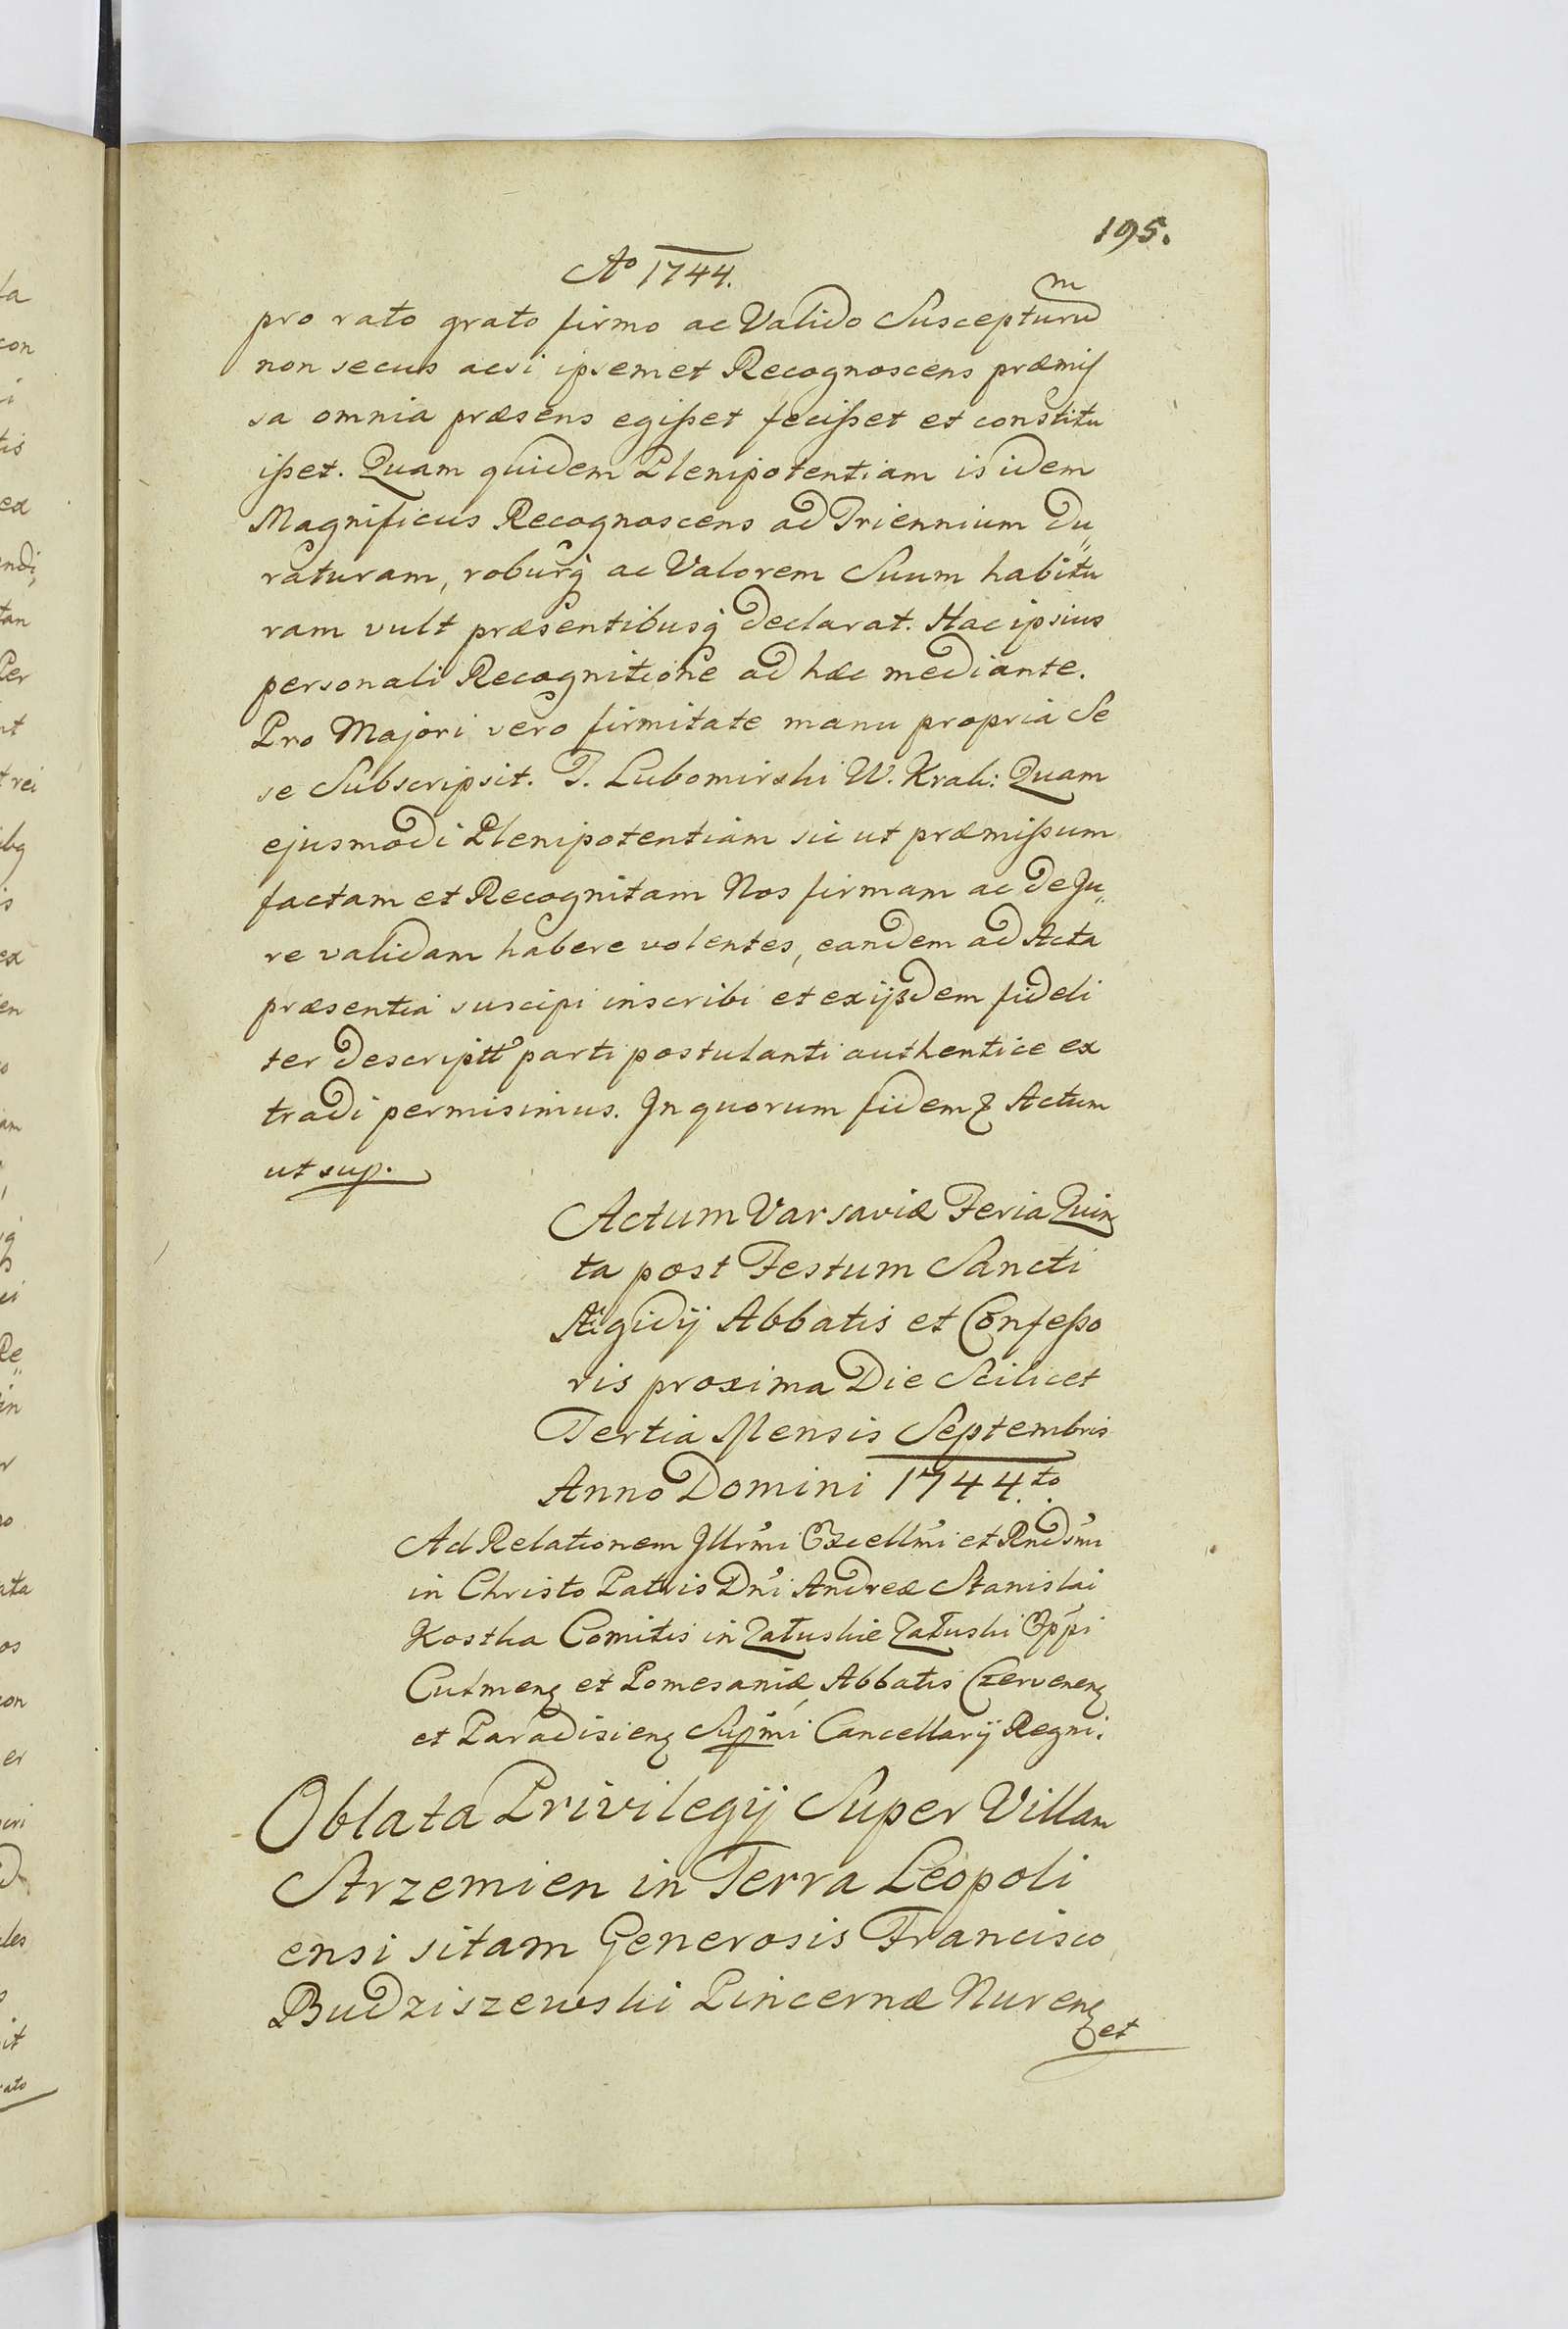 195.
Ao 1744.
pro rato grato firmo ac Valido Suscepturum
non secus acsi ipsemet Recognoscens præmis
sa omnia præsens egisset fecisset et constitu
isset. Quam quidem Plenipotentiam is idem
Magnificus Recognoscens ad Triennium du„
raturam, roburq ac Valorem Suum habitu
ram vult præsentibusq declarat. Hac ipsius
personali Recognitione ad hæc mediante.
Pro Majori vero firmitate manu propria Se
se Subscripsit. T. Lubomirski W. Krak: Quam
ejusmodi Plenipotentiam sic ut præmissum
factam et Recognitam Nos firmam ac de Ju„
re validam habere volentes, eandem ad Acta
præsentia suscipi inscribi et ex ijsdem fideli
ter descriptt parti postulanti authentice ex
tradi permisimus. In quorum fidem Actum
ut sup.
Actum Varsaviæ Feria Quin
ta post Festum Sancti
Ægidij Abbatis et Confesso
ris proxima Die Scilicet
Tertia Mensis Septembris
Anno Domini 1744.to
Ad Relationem Illrmi Excellmi et Rndsmi
in Christo Patris Dni Andreæ Stanislai
Kostka Comitis in Załuskie Załuski Eppi
Culmen et Pomesaniæ, Abbatis Czervenen
et Paradisien Supmi Cancellarij Regni.
Oblata Privilegij Super Villam
Strzemien in Terra Leopoli
ensi sitam Generosis Francisco
Budziszewski Pincernæ Nuren
et